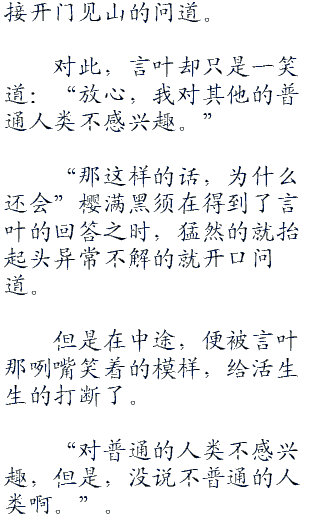 接开门见山的问道。
对此，言叶却只是一笑
道：“放心，我对其他的普
通人类不感兴趣。”
“那这样的话，为什么
还会”樱满黑须在得到了言
叶的回答之时，猛然的就抬
起头异常不解的就开口问
道。
但是在中途，便被言叶
那咧嘴笑着的模样，给活生
生的打断了。
“对普通的人类不感兴
趣，但是，没说不普通的人
类啊。”。